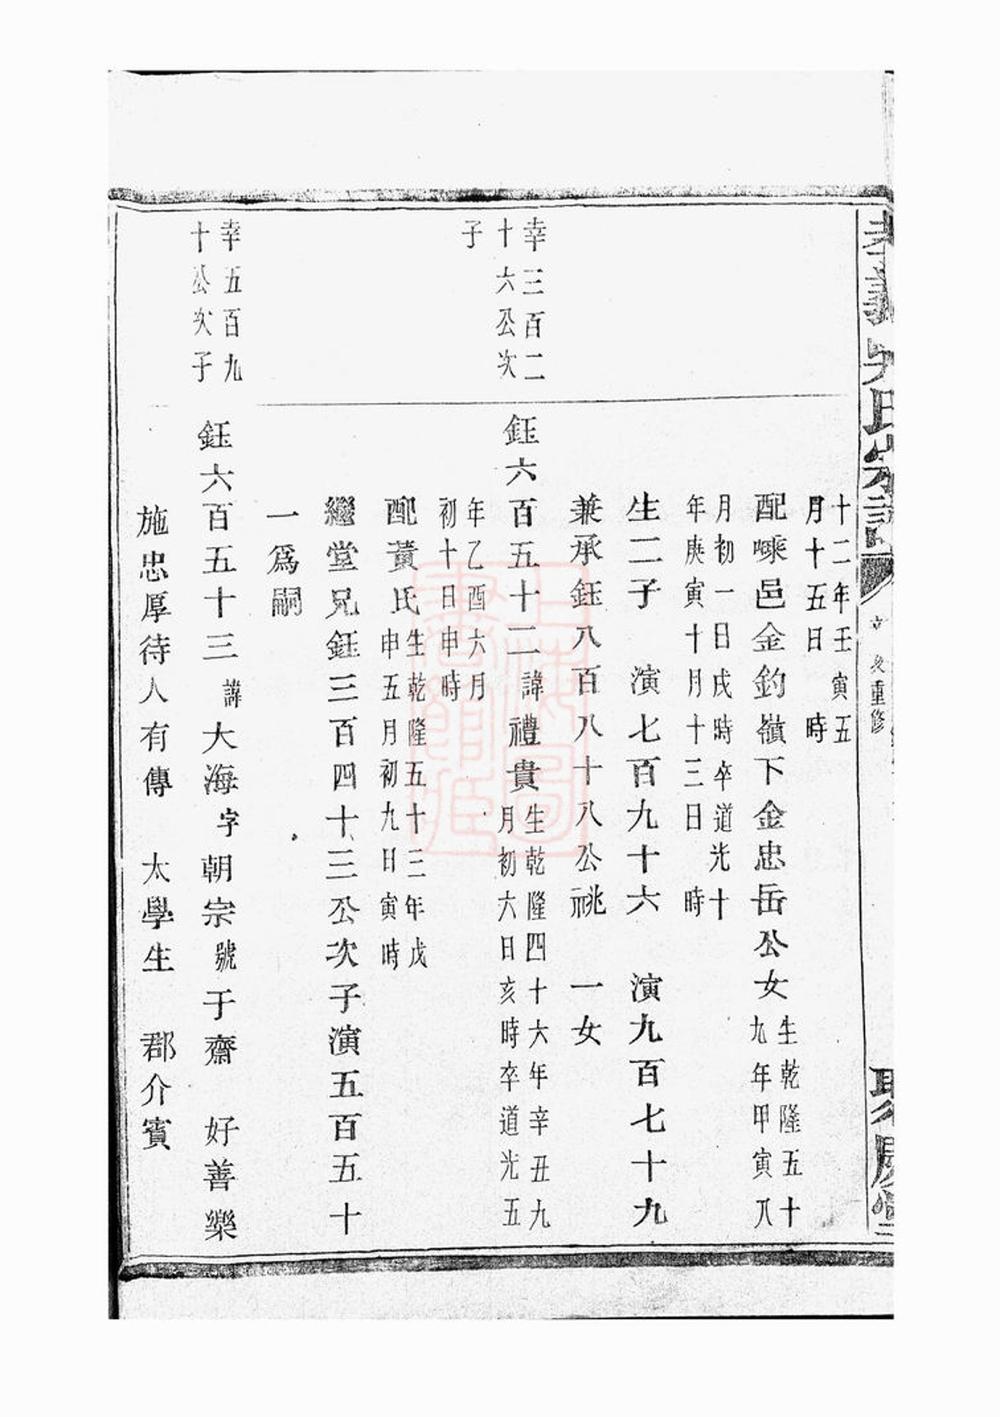 氏宗譜
重修
十二年壬寅五
月十五日　時
配嵊邑金釣嶺下金忠岳公女生乾隆五十
九年甲寅八
月初一日戌時卒道光十
年庚寅十月十三日　時
生二子　演七百九十六　演九百七十九
兼承鈺八百八十八公祧　一女
幸三百二
十六公次
子
鈺六百五十二諱禮貴生乾隆四十六年辛丑九
月初六日亥時卒道光五
年乙酉六月
初十日申時
配黃氏生乾隆五十三年戊
申五月初九日寅時
繼堂兄鈺三百四十三公次子演五百五十
一爲嗣
幸五百九
十公次子
鈺六百五十三諱大海字朝宗號于齋　好善樂
施忠厚待人有傳　太學生　郡介賓